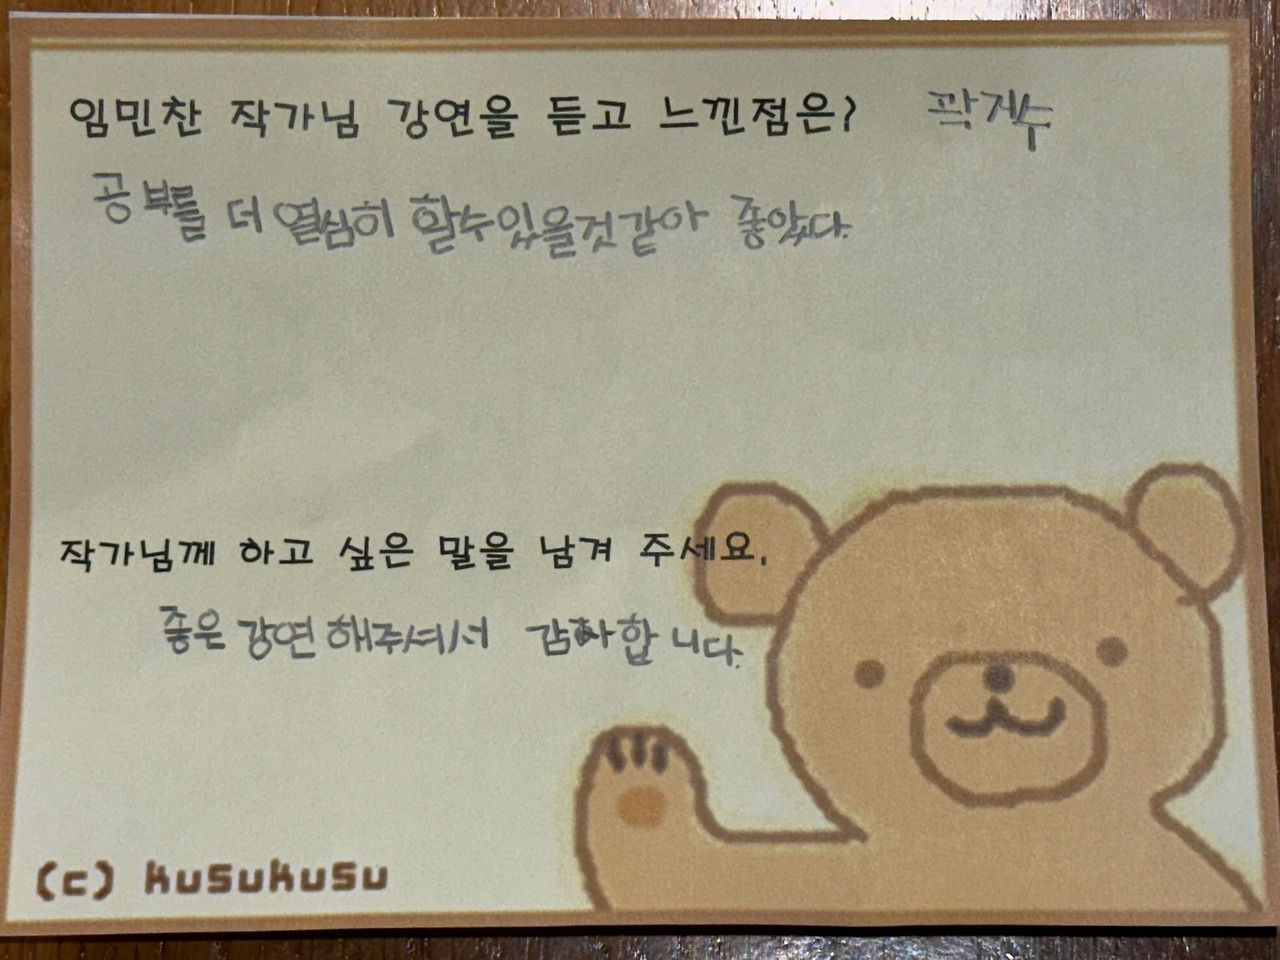 임민찬 작가님 강연을 듣고 느낀점은?
공부를 더 열심히 할수있을것같아 좋았다.
작가님께 하고 싶은 말을 남겨 주세요.
좋은 강연 해주셔서 감사합니다.
(c) kusukusu